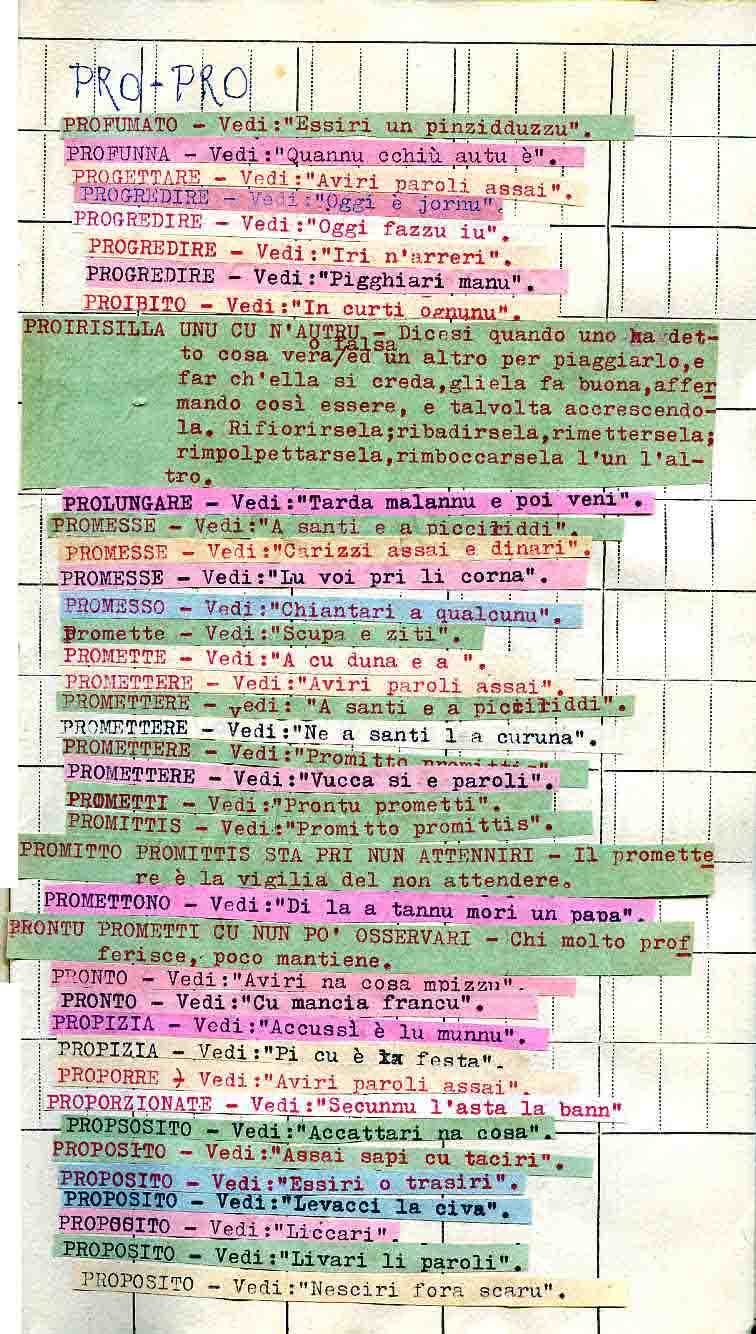 PRO-PRO
PROFUMATO - Vedi:"Essiri un pinzidduzzu".
PROFUNNA - Vedi:"Quannu cchiù autu è".
PROGETTARE - Vedi:"Aviri paroli assai".
PROGREDIRE - Vedi:"Oggi è jornu".
PROGREDIRE - Vedi:"Oggi fazzu iu".
PROGREDIRE - Vedi:"Iri n'arreri".
PROGREDIRE - Vedi:"Pigghiari manu".
PROIBITO - Vedi:"In curti ognunu".
PROIRISILLA UNU CU N'AUTRU - Dicesi quando uno ha det-
o falsa
to cosa vera/ed un altro per piaggiarlo,e
far ch'ella si creda,gliela fa buona,affer
mando così essere, e talvolta accrescendo-
la. Rifiorirsela;ribadirsela,rimettersela;
rimpolpettarsela,rimboccarsela l'un l'al-
tro.
PROLUNGARE - Vedi:"Tarda malannu e poi veni".
PROMESSE - Vedi:"A santi e a picciriddi".
PROMESSE - Vedi:"Carizzi assai e dinari".
PROMESSE - Vedi:"Lu voi pri li corna".
PROMESSO - Vedi:"Chiantari a qualcunu".
Promette - Vedi:"Scupa e ziti".
PROMETTE - Vedi:"A cu duna e a ".
PROMETTERE - Vedi:"Aviri paroli assai".
PROMETTERE - vedi: "A santi e a picciriddi".
PROMETTERE - Vedi:"Ne a santi l a curuna".
PROMETTERE - Vedi:"Promitto promittis".
PROMETTERE - Vedi:"Vucca si e paroli".
PROMETTI - Vedi:"Prontu prometti".
PROMITTIS - Vedi:"Promitto promittis".
PROMITTO PROMITTIS STA PRI NUN ATTENNIRI - Il promette
re è la vigilia del non attendere.
PROMETTONO - Vedi:"Di la a tannu mori un papa".
PRONTU PROMETTI CU NUN PO' OSSERVARI - Chi molto prof
ferisce, poco mantiene.
PRONTO - Vedi:"Aviri na cosa mpizzu".
PRONTO - Vedi:"Cu mancia francu".
PROPIZIA - Vedi:"Accussì è lu munnu".
PROPIZIA - Vedi:"Pi cu è la festa".
PROPORRE - Vedi:"Aviri paroli assai".
PROPORZIONATE - Vedi:"Secunnu l'asta la bann"
PROPSOSITO - Vedi:"Accattari na cosa".
PROPOSITO - Vedi:"Assai sapi cu taciri".
PROPOSITO - Vedi:"Essiri o trasiri".
PROPOSITO - Vedi:"Levacci la civa".
PROPOSITO - Vedi:"Liccari".
PROPOSITO - Vedi:"Livari li paroli".
PROPOSITO - Vedi:"Nesciri fora scaru".